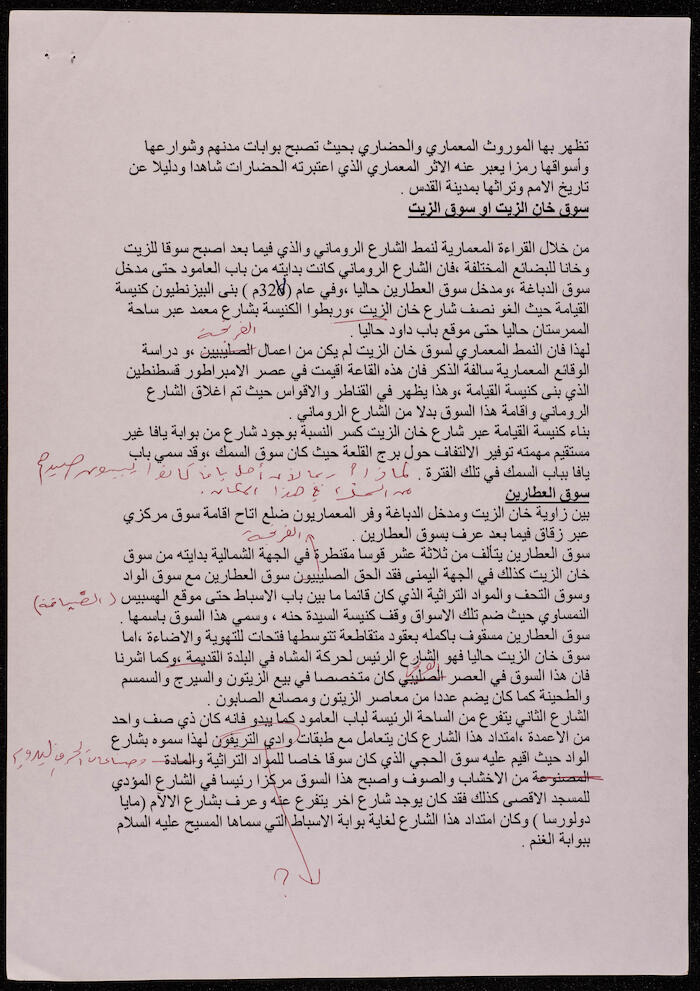 تظهر بها الموروث المعماري والحضاري بحيث تصبح بوابات مدنهم وشوارعها
وأسواقها رمزا يعبر عنه الاثر المعماري الذي اعتبرته الحضارات شاهدا ودليلا عن
تاريخ الامم وتراثها بمدينة القدس .
سوق خان الزيت او سوق الزيت
من خلال القراءة المعمارية لنمط الشارع الروماني والذي فيما بعد اصبح سوقا للزيت
وخانا للبضائع المختلفة ،فان الشارع الروماني كانت بدايته من باب العامود حتى مدخل
سوق الدباغة ،ومدخل سوق العطارين حاليا ،وفي عام (327م ) بنى البيزنطيون كنيسة
القيامة حيث الغو نصف شارع خان الزيت ،وربطوا الكنيسة بشارع معمد عبر ساحة
الممرستان حاليا حتى موقع باب داود حاليا .
الفرنجة
لهذا فان النمط المعماري لسوق خان الزيت لم يكن من اعمال الصليبيين ،و دراسة
الوقائع المعمارية سالفة الذكر فان هذه القاعة اقيمت في عصر الامبراطور قسطنطين
الذي بنى كنيسة القيامة ،وهذا يظهر في القناطر والاقواس حيث تم اغلاق الشارع
الروماني واقامة هذا السوق بدلا من الشارع الروماني .
بناء كنيسة القيامة عبر شارع خان الزيت كسر النسبة بوجود شارع من بوابة يافا غير
مستقيم مهمته توفير الالتفاف حول برج القلعة حيث كان سوق السمك ،وقد سمي باب
يافا بباب السمك في تلك الفترة . لماذا؟ ربما لأن أهل يافا كانوا يبيعون صيدهم
من السمك في هذا المكان.
سوق العطارين
بين زاوية خان الزيت ومدخل الدباغة وفر المعماريون ضلع اتاح اقامة سوق مركزي
عبر زقاق فيما بعد عرف بسوق العطارين .
الفرنجة
سوق العطارين يتألف من ثلاثة عشر قوسا مقنطرة في الجهة الشمالية بدايته من سوق
خان الزيت كذلك في الجهة اليمنى فقد الحق الصليبيون سوق العطارين مع سوق الواد
وسوق التحف والمواد التراثية الذي كان قائما ما بين باب الاسباط حتى موقع الهسبيس (الضيافة)
النمساوي حيث ضم تلك الاسواق وقف كنيسة السيدة حنه ، وسمي هذا السوق باسمها .
سوق العطارين مسقوف باكمله بعقود متقاطعة تتوسطها فتحات للتهوية والاضاءة ،اما
سوق خان الزيت حاليا فهو الشارع الرئيس لحركة المشاه في البلدة القديمة ،وكما اشرنا
فان هذا السوق في العصر الصليبي كان متخصصا في بيع الزيتون والسيرج والسمسم
والطحينة كما كان يضم عددا من معاصر الزيتون ومصانع الصابون .
الشارع الثاني يتفرع من الساحة الرئيسة لباب العامود كما يبدو فانه كان ذي صف واحد
من الاعمدة ،امتداد هذا الشارع كان يتعامل مع طبقات وادي التريفون لهذا سموه بشارع
الواد حيث اقيم عليه سوق الحجي الذي كان سوقا خاصا للمواد التراثية والمادة وصناعات الحرف اليدوية
المصنوعة من الاخشاب والصوف واصبح هذا السوق مركزا رئيسا في الشارع المؤدي
للمسجد الاقصى كذلك فقد كان يوجد شارع اخر يتفرع عنه وعرف بشارع الالام (مايا
دولورسا ) وكان امتداد هذا الشارع لغاية بوابة الاسباط التي سماها المسيح عليه السلام
ببوابة الغنم .
لا ؟